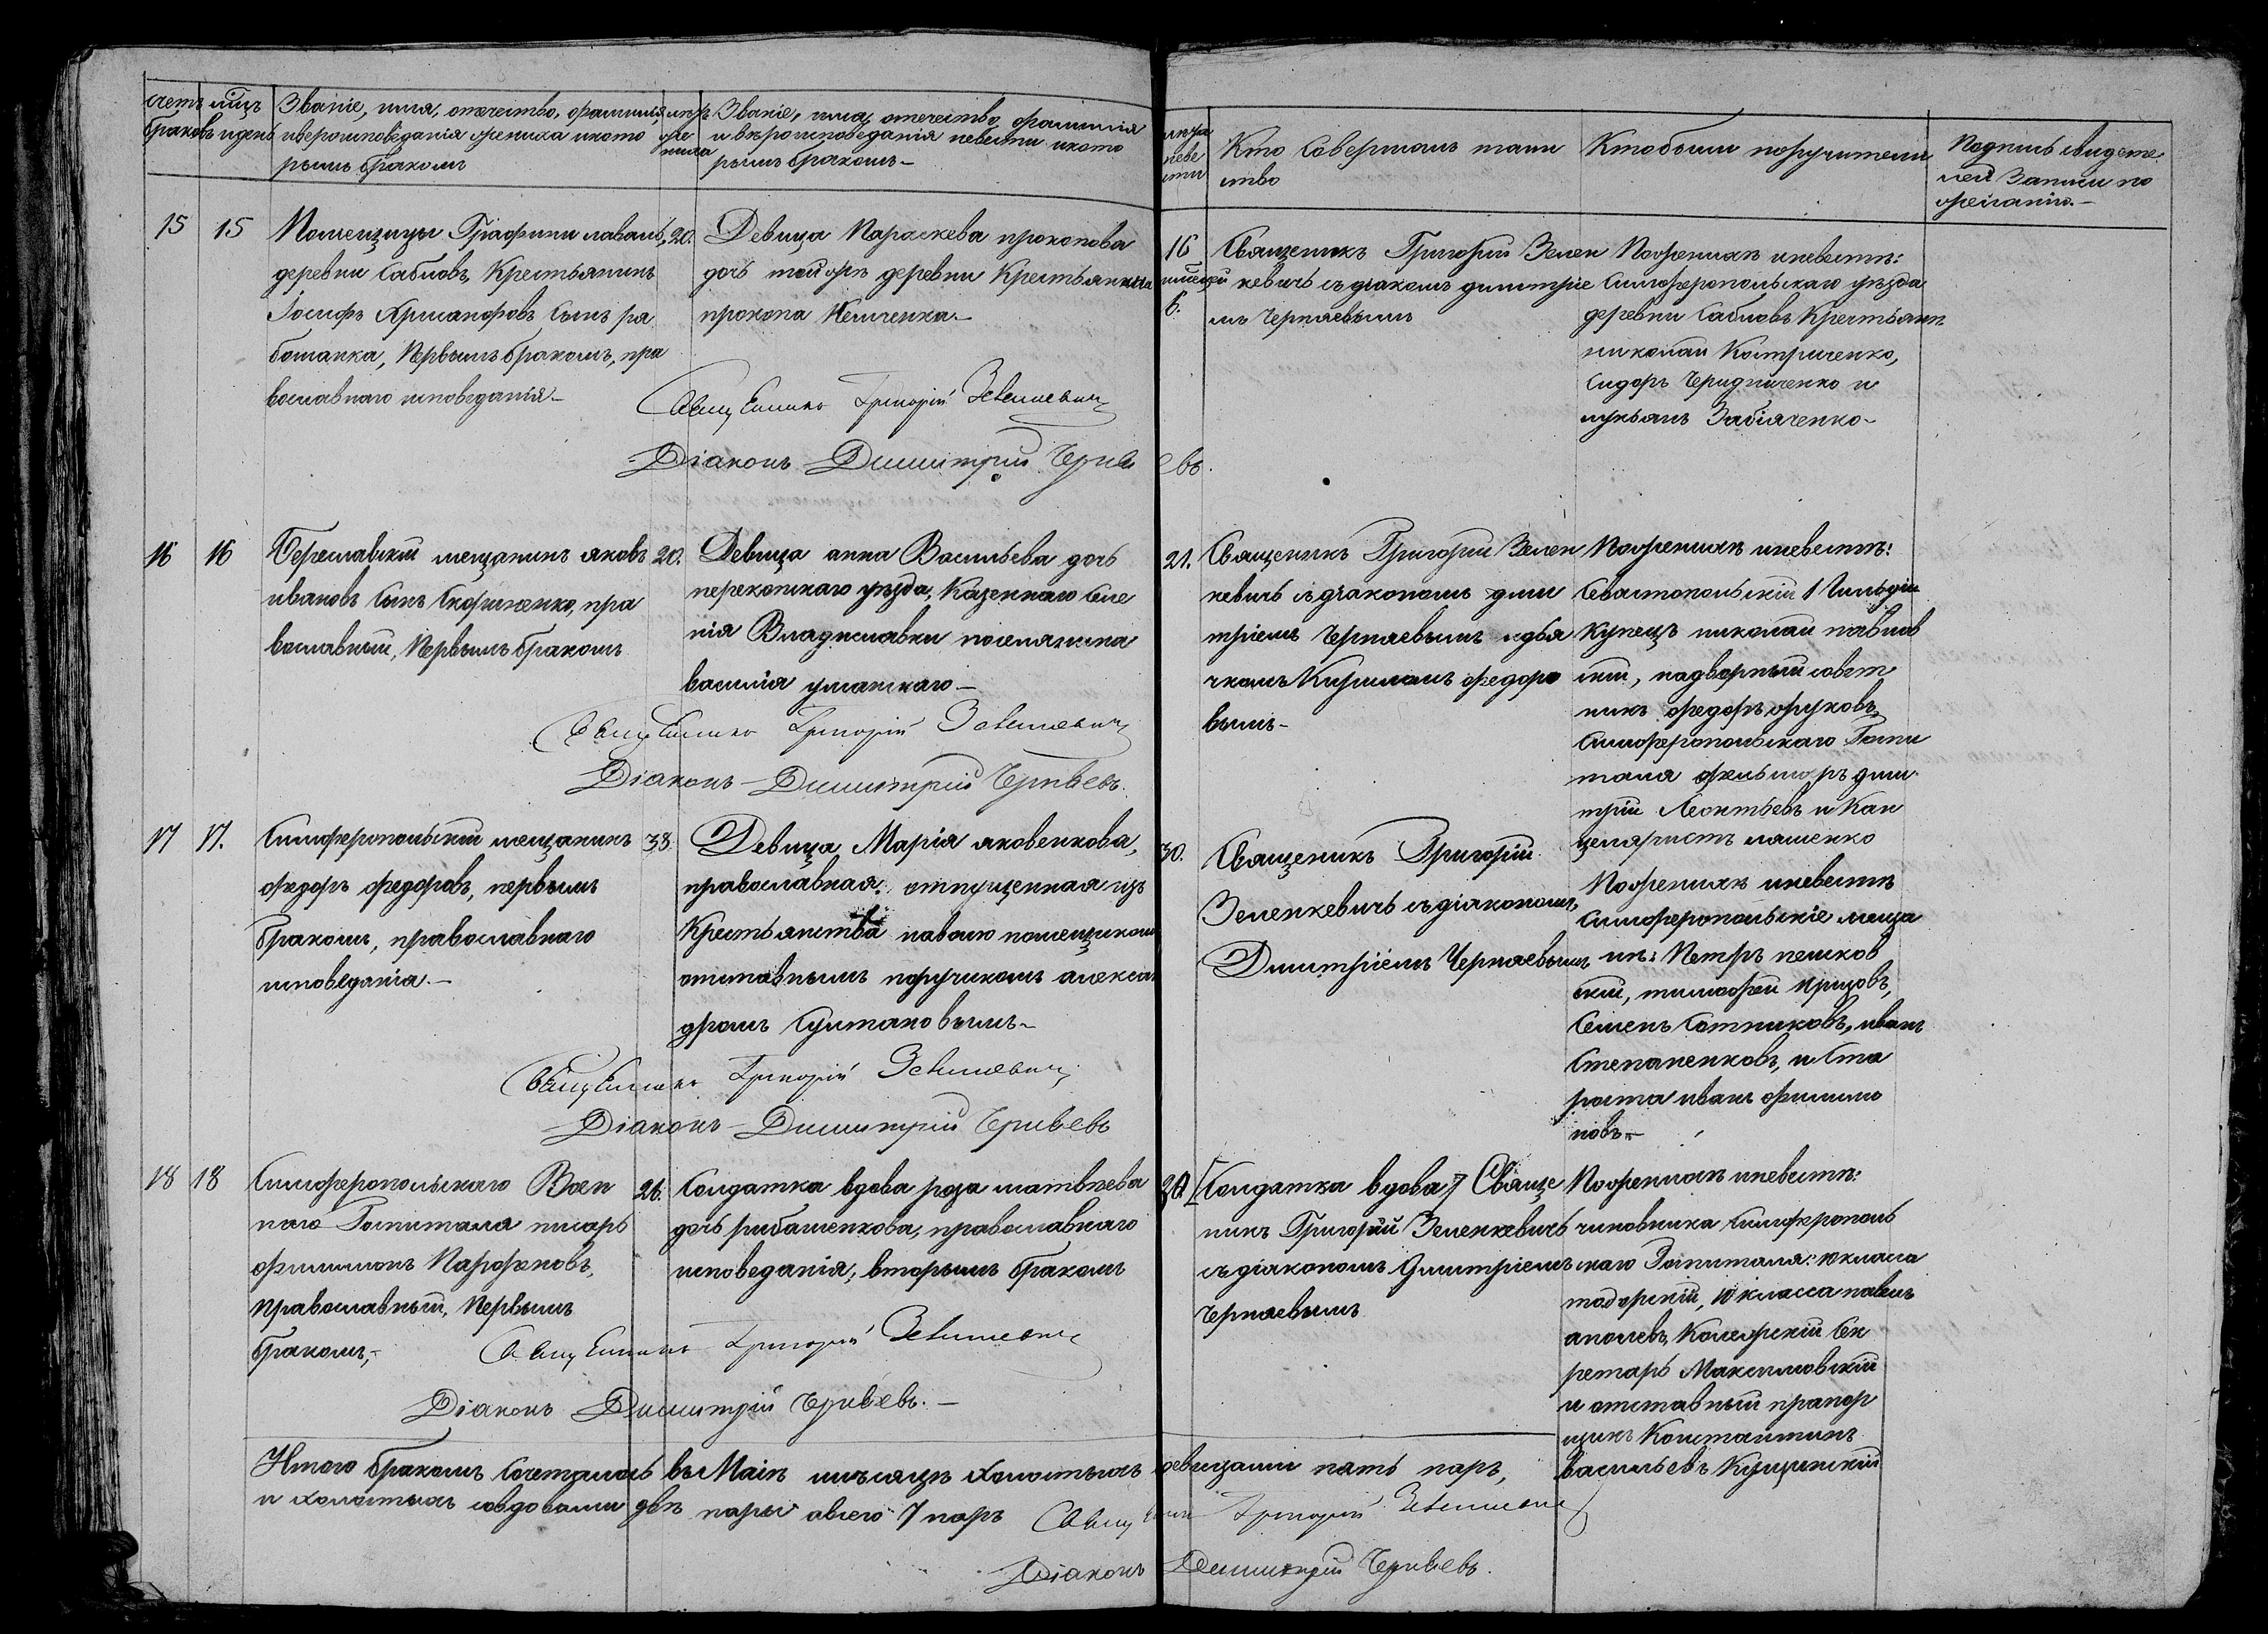 счетъ
браковъ
мцъ
и день
Званіе, имя, отечество, фамилія,
ивероисповѣданія жениха икото
рымъ бракомъ
Званіе, имя, отечество, фамилія
и вѣроисповеданія невести икото
рымъ бракомъ-
неве
сти
Кто Совершалъ таин
ство
Ктобыли поручители
Подпись свидете
лей Записи по
желанію.-
15 15
Помещицы Графини лаваль,
деревни Сабловъ, Крестьянинъ
Іосифъ Сынъ ра
ботанка, Первымъ бракомъ, пра
вославнаго исповеданія-
20.
Девица Параскева прокопова
дочь тойжъ деревни Крестьянина
прокопа
16
6.
Священикъ Григорій Зелен
кевичь съ діакомъ димитріе
мъ Черняевымъ
Поженихѣ иневестѣ:
Симферопольскаго уѣзда
деревни Сабловъ Крестьяне
николаи Костриченко,
Сидоръ Чередниченко и
лукьянъ Забіяченко-
Священникъ Григорій Зеленкевичь
Діаконъ Димитрій Черняевъ.
16 16
Береславскій мещанинъ яковъ
ивановъ Сынъ пра
вославный, Первымъ бракомъ
20.
Девица анна Васильева дочь
перекопскаго уѣзда, Казеннаго Селе
нія Владиславки поселянина
василія уманскаго-
21.
Священикъ Григорій Зелен
кевичь съ діакономъ дими
тріемъ Черняевымъ идья
чкомъ Кириломъ федоро
вымъ-
Поженихѣ иневестѣ:
Севастопольскій 1 Гильдіи
Купецъ николаи павлов
скій, надворный совет
никъ федоръ жуковъ,
Симферопольскаго Госпи
таля фельшоръ дими
трій Леонтьевъ и Кан
целяристъ ляшенко
Священникъ Григорій Зеленкевичь
Діаконъ Димитрій Черняевъ.
17 17.
Симферопольскій мещанинъ
федоръ федоровъ, первымъ
бракомъ, православнаго
исповеданія.-
38.
Девица Марія яковенкова,
православная, отпущенная изъ
Крестьянства наволю помещикомъ
отставнымъ поручикомъ алекса
дромъ Султановымъ-
30.
Священикъ Григорій
Зеленкевичь съдіакономъ
Димитріемъ Черняевымъ
Поженихѣ иневестѣ
Симферопольскіе меща
не: Петръ пешков
скій, тимофеи
Семенъ Сотниковъ, иванъ
Степаненковъ, и Ста
роста иванъ филимо
новъ-
Священникъ Григорій Зеленкевичь
Діаконъ Димитрій Черняевъ
18 18
Симферопольскаго Воен
наго Госпиталя писарь
филимонъ Парфеновъ,
Православный, Первымъ
бракомъ,-
26.
Солдатка вдова роза матвѣева
дочь рибашенкова, православнаго
исповеданія, вторымъ бракомъ
30.
[Солдатка вдова] Свяще
никъ Григорій Зеленкевичь
съдіакономъ Димитріемъ
Черняевымъ
Поженихѣ иневестѣ:
чиновника Симферополь
скаго Госпиталя: 10 класса
10 класса павелъ
Колежскій Сек
ретарь Максимовскій
и отставный прапор
щикъ Константинъ
васильевъ
Священникъ Григорій Зеленкевичь
Діаконъ Димитрій Черняевъ.-
Итого бракомъ Сочеталось въ Маіѣ мѣсяцѣ холостыхъ здевицами пять паръ,
и холостыхъ совдовами двѣ пары авсего 7 паръ Священникъ Григорій Зеленкевичь
Діаконъ Димитрій Черняевъ.